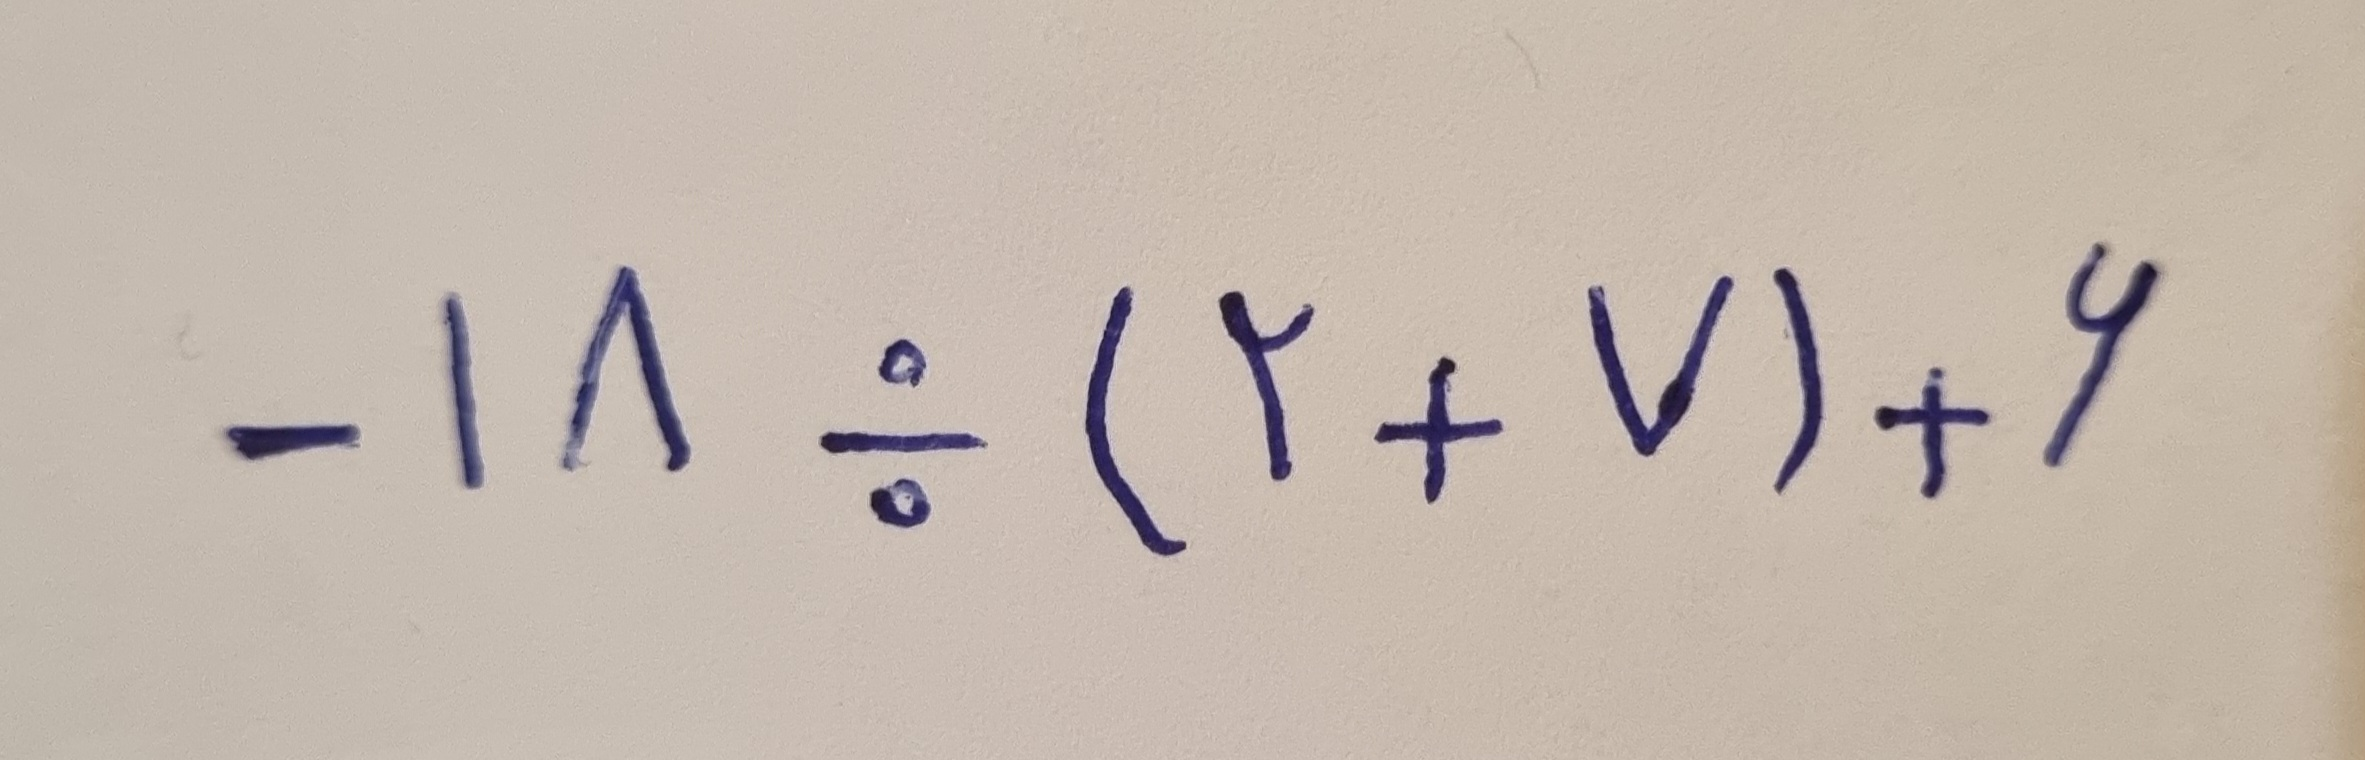 -۱۸ ÷ (۲ + ۷) + ۶